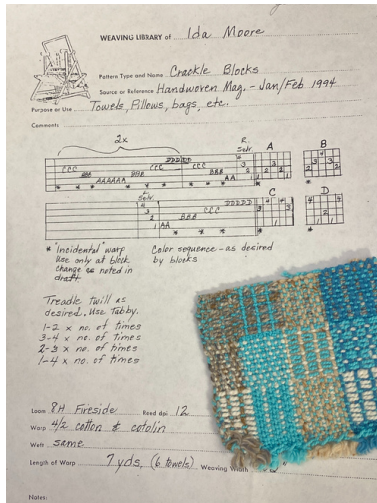 WEAVING LIBRARY of Ida Moore
Pattern Type and Name Crackle Blocks
Source or Reference Handwoven Mag. - Jan/Feb 1994
Purpose or Use Towels, Pillows, bags, etc.
Comments
2x
R.
Selv.
A
B
DDDDD
CCC CCC CCC
BBB BBB BBB
AAAAAA AA
L.
Selv.
C
D
DDDDD
CCC
BBB
AA
* "Incidental" warp
use only at block
change as noted in
draft
Color sequence - as desired
by blocks
Treadle twill as
desired. Use Tabby.
1-2 x no. of times
3-4 x no. of times
2-3 x no. of times
1-4 x no. of times
Loom 8H Fireside Reed dpi 12
Warp 4/2 cotton & cotolin
Weft same
Length of Warp 7 yds, (6 towels) Weaving Width
Notes: